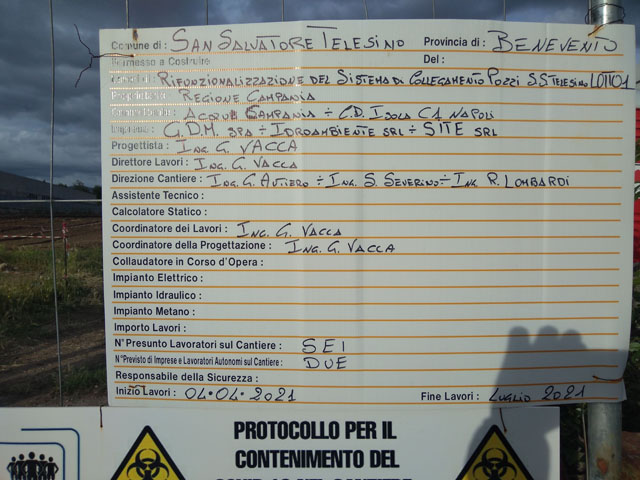 Comune di: SAN SALVATORE TELESINO Provincia di: BENEVENTO
Permesso a Costruire Del:
RIFUNZIONALIZZAZIONE DEL SISTEMA DI COLLEGAMENTO POZZI S.S TELESINO LOTTO 1
REGIONE CAMPANIA
ACQUA CAMPANIA ÷ C.D. ISOLA C1 NAPOLI
G.D.M. SPA ÷ IDROAMBIENTE SRL ÷ SITE SRL
Progettista: ING G. VACCA
Direttore Lavori: ING. G. VACCA
Direzione Cantiere: ING. G. AUTIERO ÷ ING. S. SEVERINO ÷ ING R. LOMBARDI
Assistente Tecnico:
Calcolatore Statico:
Coordinatore dei Lavori: ING. G. VACCA
Coordinatore della Progettazione: ING. G. VACCA
Collaudatore in Corso d'Opera:
Impianto Elettrico:
Impianto Idraulico:
Impianto Metano:
Importo Lavori:
N° Presunto Lavoratori sul Cantiere: SEI
N° Previsto di Imprese e Lavoratori Autonomi sul Cantiere: DUE
Responsabile della Sicurezza:
Inizio Lavori: 04.04.2021 Fine Lavori: LUGLIO 2021
PROTOCOLLO PER IL
CONTENIMENTO DEL
COVID-19 NEL CANTIERE